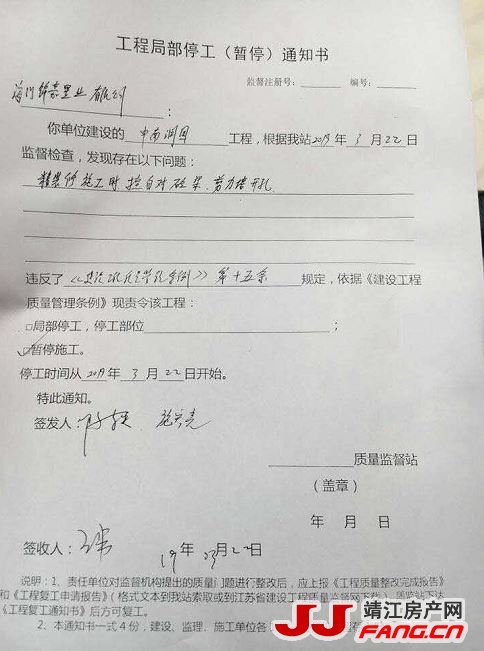 工程局部停工（暂停）通知书
监督注册号： 编号：
海门锦嘉置业有限公司：
你单位建设的 中南澜园 工程，根据我站2019年3月22日
监督检查，发现存在以下问题：
精装修施工时擅自对砼梁、剪力墙开孔
违反了《建设工程质量管理条例》第十五条 规定，依据《建设工程
质量管理条例》现责令该工程：
□局部停工，停工部位 ；
☑暂停施工。
停工时间从2019年3月22日开始。
特此通知。
签发人：
质量监督站
（盖章）
年 月 日
签收人：
19年 3月22日
说明：1、责任单位对监督机构提出的质量门题进行整改后，应上报《工程质量整改完成报告》
和《工程复工申请报告》（格式文本到我站索取或到江苏省建设工程质量监督网下载）。质监站下达
《工程复工通知书》后方可复工。
2、本通知书一式4份，建设、监理、施工单位各
JJ 靖江房产网
FANG.CN